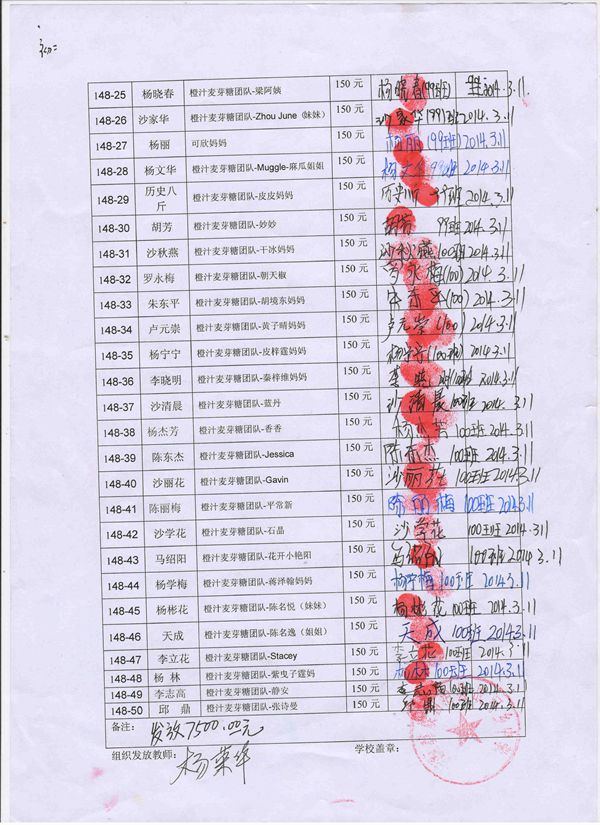 148-25 杨晓春 橙汁麦芽糖团队-梁阿姨 150 元 杨晓春(99班) 2014.3.11.
148-26 沙家华 橙汁麦芽糖团队-Zhou June（妹妹） 150 元 沙家华(99)班 2014.3.11
148-27 杨丽 可欣妈妈 150 元 杨丽(99班 2014.3.11
148-28 杨文华 橙汁麦芽糖团队-Muggle-麻瓜姐姐 150 元 杨文华 2014.3.11
148-29 历史八斤 橙汁麦芽糖团队-皮皮妈妈 150 元 99班 2014.3.11
148-30 胡芳 橙汁麦芽糖团队-妙妙 150 元 胡芳 99班 2014.3.11
148-31 沙秋燕 橙汁麦芽糖团队-干冰妈妈 150 元 沙秋燕(100班) 2014.3.11
148-32 罗永梅 橙汁麦芽糖团队-朝天椒 150 元 罗永梅(100) 2014.3.11
148-33 朱东平 橙汁麦芽糖团队-胡境东妈妈 150 元 朱东平(100) 2014.3.11
148-34 卢元崇 橙汁麦芽糖团队-黄子晴妈妈 150 元 卢元崇(100) 2014.3.11
148-35 杨宁宁 橙汁麦芽糖团队-皮梓霆妈妈 150 元 杨宁宁(100班) 2014.3.11
148-36 李晓明 橙汁麦芽糖团队-秦梓维妈妈 150 元 2014.3.11
148-37 沙清晨 橙汁麦芽糖团队-蓝丹 150 元 沙清晨 100班 2014.3.11
148-38 杨杰芳 橙汁麦芽糖团队-香香 150 元 100班 2014.3.11
148-39 陈东杰 橙汁麦芽糖团队-Jessica 150 元 陈东杰 100班 2014.3.11
148-40 沙丽花 橙汁麦芽糖团队-Gavin 150 元 沙丽花 100班 2014.3.11
148-41 陈丽梅 橙汁麦芽糖团队-平常新 150 元 陈丽梅 100班 2014.3.11
148-42 沙学花 橙汁麦芽糖团队-石晶 150 元 沙学花 100班 2014.3.11
148-43 马绍阳 橙汁麦芽糖团队-花开小艳阳 150 元 100班 2014.3.11
148-44 杨学梅 橙汁麦芽糖团队-蒋泽翰妈妈 150 元 杨学梅 100班 2014.3.11
148-45 杨彬花 橙汁麦芽糖团队-陈名悦（妹妹） 150 元 杨彬花 100班 2014.3.11
148-46 天成 橙汁麦芽糖团队-陈名逸（姐姐） 150 元 天成 100班 2014.3.11
148-47 李立花 橙汁麦芽糖团队-Stacey 150 元 李立花 100班 2014.3.11
148-48 杨 林 橙汁麦芽糖团队-紫曳子霆妈 150 元 杨林 100班 2014.3.11
148-49 李志高 橙汁麦芽糖团队-静安 150 元 100班 2014.3.11
148-50 邱 鼎 橙汁麦芽糖团队-张诗曼 150 元 邱鼎 100班 2014.3.11
备注： 发放7500.00元
组织发放教师： 杨荣华 学校盖章：